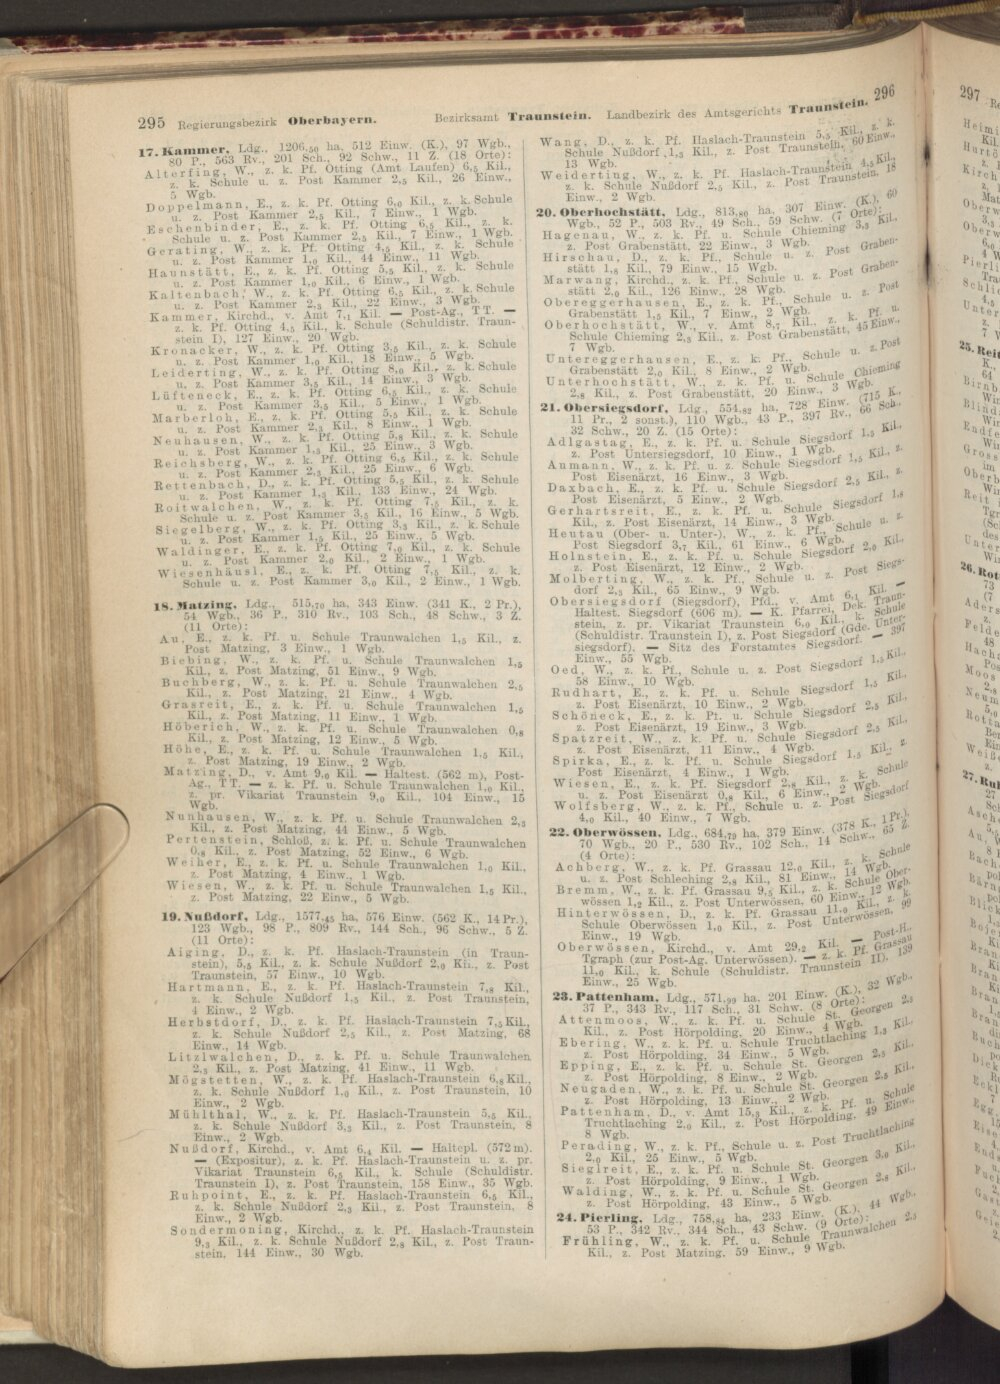 295 Regierungsbezirk Oberbayern.
Bezirksamt Traunstein. Landbezirk des Amtsgerichts Traunstein. 296
17. Kammer, Ldg., 1206,50 ha, 512 Einw. (K.), 97 Wgb.,
80 P., 563 Rv., 201 Sch., 92 Schw., 11 Z. (18 Orte):
Alterfing, W., z. k. Pf. Otting (Amt Laufen) 6,5 Kil.,
z. k. Schule u. z. Post Kammer 2,5 Kil., 26 Einw.,
5 Wgb.
Doppelmann, E., z. k. Pf. Otting 6,0 Kil., z. k. Schule
u. z. Post Kammer 2,5 Kil., 7 Einw., 1 Wgb.
Eschenbinder, E., z. k. Pf. Otting 6,5 Kil., z. k.
Schule u. z. Post Kammer 2,5 Kil., 7 Einw., 1 Wgb.
Gerating, W., z. k. Pf. Otting 4,5 Kil., z. k. Schule
u. z. Post Kammer 1,0 Kil., 44 Einw., 11 Wgb.
Haunstätt, E., z. k. Pf. Otting 5,5 Kil., z. k. Schule
u. z. Post Kammer 1,0 Kil., 6 Einw., 1 Wgb.
Kaltenbach, W., z. k. Pf. Otting 6,5 Kil., z. k. Schule
u. z. Post Kammer 2,3 Kil., 22 Einw., 3 Wgb.
Kammer, Kirchd., v. Amt 7,1 Kil. — Post-Ag., TT. —
z. k. Pf. Otting 4,5 Kil., k. Schule (Schuldistr. Traun-
stein I), 127 Einw., 20 Wgb.
Kronacker, W., z. k. Pf. Otting 3,5 Kil., z. k. Schule
u. z. Post Kammer 1,0 Kil., 18 Einw., 5 Wgb.
Leiderting, W., z. k. Pf. Otting 8,0 Kil., z. k. Schule
u. z. Post Kammer 3,5 Kil., 14 Einw., 3 Wgb.
Lüfteneck, E., z. k. Pf. Otting 6,5 Kil., z. k. Schule
u. z. Post Kammer 3,5 Kil., 5 Einw., 1 Wgb.
Marberloh, E., z. k. Pf. Otting 5,5 Kil., z. k. Schule
u. z. Post Kammer 2,3 Kil., 8 Einw., 1 Wgb.
Neuhausen, W., z. k. Pf. Otting 5,8 Kil., z. k. Schule
u. z. Post Kammer 1,3 Kil., 25 Einw., 3 Wgb.
Reichsberg, W., z. k. Pf. Otting 6,5 Kil., z. k. Schule
u. z. Post Kammer 2,3 Kil., 25 Einw., 6 Wgb.
Rettenbach, D., z. k. Pf. Otting 5,5 Kil., z. k. Schule
u. z. Post Kammer 1,5 Kil., 133 Einw., 24 Wgb.
Roitwalchen, W., z. k. Pf. Otting 7,5 Kil., z. k.
Schule u. z. Post Kammer 3,5 Kil., 16 Einw., 5 Wgb.
Siegelberg, W., z. k. Pf. Otting 3,3 Kil., z. k. Schule
u. z. Post Kammer 1,5 Kil., 25 Einw., 5 Wgb.
Waldinger, E., z. k. Pf. Otting 7,0 Kil., z. k. Schule
u. z. Post Kammer 2,0 Kil., 2 Einw., 1 Wgb.
Wiesenhäusl, E., z. k. Pf. Otting 7,5 Kil., z. k.
Schule u. z. Post Kammer 3,0 Kil., 2 Einw., 1 Wgb.
18. Matzing, Ldg., 515,70 ha, 343 Einw. (341 K., 2 Pr.),
54 Wgb., 36 P., 310 Rv., 103 Sch., 48 Schw., 3 Z.
(11 Orte):
Au, E., z. k. Pf. u. Schule Traunwalchen 1,5 Kil., z.
Post Matzing, 3 Einw., 1 Wgb.
Biebing, W., z. k. Pf. u. Schule Traunwalchen 1,5
Kil., z. Post Matzing, 51 Einw., 9 Wgb.
Buchberg, W., z. k. Pf. u. Schule Traunwalchen 2,5
Kil., z. Post Matzing, 21 Einw., 4 Wgb.
Grasreit, E., z. k. Pf. u. Schule Traunwalchen 1,5
Kil., z. Post Matzing, 11 Einw., 1 Wgb.
Höberich, W., z. k. Pf. u. Schule Traunwalchen 0,8
Kil., z. Post Matzing, 12 Einw., 5 Wgb.
Höhe, E., z. k. Pf. u. Schule Traunwalchen 1,5 Kil.,
z. Post Matzing, 19 Einw., 2 Wgb.
Matzing, D., v. Amt 9,0 Kil. — Haltest. (562 m), Post-
Ag., TT. — z. k. Pf. u. Schule Traunwalchen 1,0 Kil.,
z. pr. Vikariat Traunstein 9,0 Kil., 104 Einw., 15
Wgb.
Nunhausen, W., z. k. Pf. u. Schule Traunwalchen 2,3
Kil., z. Post Matzing, 44 Einw., 5 Wgb.
Pertenstein, Schloß, z. k. Pf. u. Schule Traunwalchen
0,8 Kil., z. Post Matzing, 52 Einw., 6 Wgb.
Weiher, E., z. k. Pf. u. Schule Traunwalchen 1,0 Kil.,
z. Post Matzing, 4 Einw., 1 Wgb.
Wiesen, W., z. k. Pf. u. Schule Traunwalchen 1,5 Kil.,
z. Post Matzing, 22 Einw., 5 Wgb.
19. Nußdorf, Ldg., 1577,45 ha, 576 Einw. (562 K., 14 Pr.),
123 Wgb., 98 P., 809 Rv., 144 Sch., 96 Schw., 5 Z.
(11 Orte):
Aiging, D., z. k. Pf. Haslach-Traunstein (in Traun-
stein), 5,5 Kil., z. k. Schule Nußdorf 2,0 Kil., z. Post
Traunstein, 57 Einw., 10 Wgb.
Hartmann, E., z. k. Pf. Haslach-Traunstein 7,8 Kil.,
z. k. Schule Nußdorf 1,5 Kil., z. Post Traunstein,
4 Einw., 2 Wgb.
Herbstdorf, D., z. k. Pf. Haslach-Traunstein 7,5 Kil.,
z. k. Schule Nußdorf 2,5 Kil., z. Post Matzing, 68
Einw., 14 Wgb.
Litzlwalchen, D., z. k. Pf. u. Schule Traunwalchen
2,3 Kil., z. Post Matzing, 41 Einw., 11 Wgb.
Mögstetten, W., z. k. Pf. Haslach-Traunstein 6,8 Kil.,
z. k. Schule Nußdorf 1,0 Kil., z. Post Traunstein, 10
Einw., 2 Wgb.
Mühlthal, W., z. k. Pf. Haslach-Traunstein 5,5 Kil.,
z. k. Schule Nußdorf 3,3 Kil., z. Post Traunstein, 8
Einw., 2 Wgb.
Nußdorf, Kirchd., v. Amt 6,4 Kil. — Haltepl. (572 m).
— (Expositur), z. k. Pf. Haslach-Traunstein u. z. pr.
Vikariat Traunstein 6,5 Kil., k. Schule (Schuldistr.
Traunstein I), z. Post Traunstein, 158 Einw., 35 Wgb.
Ruhpoint, E., z. k. Pf. Haslach-Traunstein 6,5 Kil.,
z. k. Schule Nußdorf 2,3 Kil., z. Post Traunstein, 8
Einw., 2 Wgb.
Sondermoning, Kirchd., z. k. Pf. Haslach-Traunstein
9,3 Kil., z. k. Schule Nußdorf 2,8 Kil., z. Post Traun-
stein, 144 Einw., 30 Wgb.
Wang, D., z. k. Pf. Haslach-Traunstein 5,5 Kil., z. k.
Schule Nußdorf 1,5 Kil., z. Post Traunstein, 60 Einw.,
13 Wgb.
Weiderting, W., z. k. Pf. Haslach-Traunstein 4,5 Kil.,
z. k. Schule Nußdorf 2,5 Kil., z. Post Traunstein, 18
Einw., 2 Wgb.
20. Oberhochstätt, Ldg., 813,80 ha, 307 Einw. (K.), 60
Wgb., 52 P., 503 Rv., 49 Sch., 59 Schw. (7 Orte):
Hagenau, W., z. k. Pf. u. Schule Chieming 3,3 Kil.,
z. Post Grabenstätt, 22 Einw., 3 Wgb.
Hirschau, D., z. k. Pf., Schule u. z. Post Graben-
stätt 1,8 Kil., 79 Einw., 15 Wgb.
Marwang, Kirchd., z. k. Pf., Schule u. z. Post Graben-
stätt 2,0 Kil., 126 Einw., 28 Wgb.
Obereggerhausen, E., z. k. Pf., Schule u. z. Post
Grabenstätt 1,5 Kil., 7 Einw., 2 Wgb.
Oberhochstätt, W., v. Amt 8,7 Kil., z. k. Pf. u.
Schule Chieming 2,3 Kil., z. Post Grabenstätt, 45 Einw.,
7 Wgb.
Untereggerhausen, E., z. k. Pf., Schule u. z. Post
Grabenstätt 2,0 Kil., 8 Einw., 2 Wgb.
Unterhochstätt, W., z. k. Pf. u. Schule Chieming
2,8 Kil., z. Post Grabenstätt, 20 Einw., 3 Wgb.
21. Obersiegsdorf, Ldg., 554,82 ha, 728 Einw. (715 K.,
11 Pr., 2 sonst.), 110 Wgb., 43 P., 397 Rv., 66 Sch.,
32 Schw., 20 Z. (15 Orte):
Adlgastag, E., z. k. Pf. u. Schule Siegsdorf 1,5 Kil.,
z. Post Untersiegsdorf, 10 Einw., 1 Wgb.
Aumann, W., z. k. Pf. u. z. Schule Siegsdorf 1,5 Kil., z.
Post Eisenärzt, 16 Einw., 3 Wgb.
Daxbach, E., z. k. Pf. u. Schule Siegsdorf 2,5 Kil., z.
Post Eisenärzt, 5 Einw., 2 Wgb.
Gerhartsreit, E., z. k. Pf. u. Schule Siegsdorf 1,8
Kil., z. Post Eisenärzt, 14 Einw., 3 Wgb.
Heutau (Ober- u. Unter-), W., z. k. Pf., Schule u. z.
Post Siegsdorf 3,7 Kil., 61 Einw., 6 Wgb.
Holnstein, E., z. k. Pf. u. Schule Siegsdorf 2,0 Kil.,
z. Post Eisenärzt, 12 Einw., 2 Wgb.
Molberting, W., z. k. Pf., Schule u. z. Post Siegs-
dorf 2,5 Kil., 65 Einw., 9 Wgb.
Obersiegsdorf (Siegsdorf), Pfd., v. Amt 6,1 Kil. —
Haltest. Siegsdorf (606 m). — K. Pfarrei, Dek. Traun-
stein, z. pr. Vikariat Traunstein 6,0 Kil., k. Schule
(Schuldistr. Traunstein I), z. Post Siegsdorf (Gde. Unter-
siegsdorf). — Sitz des Forstamtes Siegsdorf. — 397
Einw., 55 Wgb.
Oed, W., z. k. Pf., Schule u. z. Post Siegsdorf 1,5 Kil.,
58 Einw., 10 Wgb.
Rudhart, E., z. k. Pf. u. Schule Siegsdorf 1,5 Kil.,
z. Post Eisenärzt, 10 Einw., 2 Wgb.
Schöneck, E., z. k. Pf. u. Schule Siegsdorf 2,5 Kil.,
z. Post Eisenärzt, 19 Einw., 3 Wgb.
Spatzreit, W., z. k. Pf. u. Schule Siegsdorf 2,5 Kil.,
z. Post Eisenärzt, 11 Einw., 4 Wgb.
Spirka, E., z. k. Pf. u. Schule Siegsdorf 1,5 Kil., z.
Post Eisenärzt, 4 Einw., 1 Wgb.
Wiesen, E., z. k. Pf. Siegsdorf 2,8 Kil., z. k. Schule
u. z. Post Eisenärzt 0,8 Kil., 6 Einw., 2 Wgb.
Wolfsberg, W., z. k. Pf., Schule u. z. Post Siegsdorf
4,0 Kil., 40 Einw., 7 Wgb.
22. Oberwössen, Ldg., 684,79 ha. 379 Einw. (378 K., 1 Pr.),
70 Wgb., 20 P., 530 Rv., 102 Sch., 14 Schw., 65 Z.
(4 Orte):
Achberg, W., z. k. Pf. Grassau 12,0 Kil., z. k. Schule
u. z. Post Schleching 2,8 Kil., 81 Einw., 14 Wgb.
Bremm, W., z. k. Pf. Grassau 9,5 Kil., z. k. Schule Ober-
wössen 1,2 Kil., z. Post Unterwössen, 60 Einw., 12 Wgb.
Hinterwössen, D., z. k. Pf. Grassau 11,0 Kil., z. k.
Schule Oberwössen 1,0 Kil., z. Post Unterwössen, 99
Einw., 19 Wgb.
Oberwössen, Kirchd., v. Amt 29,2 Kil. — Post-H.,
Tgraph (zur Post-Ag. Unterwössen). — z. k. Pf. Grassau
11,0 Kil., k. Schule (Schuldistr. Traunstein II), 139
Einw., 25 Wgb.
23. Pattenham, Ldg., 571,99 ha. 201 Einw. (K.), 32 Wgb.,
37 P., 343 Rv., 117 Sch., 31 Schw. (8 Orte):
Attenmoos, W., z. k. Pf. u. Schule St. Georgen 2,5
Kil., z. Post Hörpolding, 20 Einw., 4 Wgb.
Ebering, W., z. k. Pf. u. Schule Truchtlaching 1,3 Kil.,
z. Post Hörpolding, 34 Einw., 5 Wgb.
Epping, E., z. k. Pf. u. Schule St. Georgen 2,5 Kil.,
z. Post Hörpolding, 8 Einw., 2 Wgb.
Neugaden, W., z. k. Pf. u. Schule St. Georgen 2,5 Kil.,
z. Post Hörpolding, 13 Einw., 2 Wgb.
Pattenham, D., v. Amt 15,3 Kil., z. k. Pf. u. Schule
Truchtlaching 2,0 Kil., z. Post Hörpolding, 49 Einw.,
8 Wgb.
Perading, W., z. k. Pf., Schule u. z. Post Truchtlaching
2,0 Kil., 25 Einw., 5 Wgb.
Sieglreit, E., z. k. Pf. u. Schule St. Georgen 3,0 Kil.,
z. Post Hörpolding, 9 Einw., 1 Wgb.
Walding, W., z. k. Pf. u. Schule St. Georgen 2,8 Kil.,
z. Post Hörpolding, 43 Einw., 5 Wgb.
24. Pierling, Ldg., 758,84 ha, 233 Einw. (K.), 44 Wgb.,
53 P., 342 Rv., 344 Sch., 43 Schw. (9 Orte):
Frühling, W., z. k. Pf. u. Schule Traunwalchen 2,5
Kil., z. Post Matzing, 59 Einw., 9 Wgb.
297